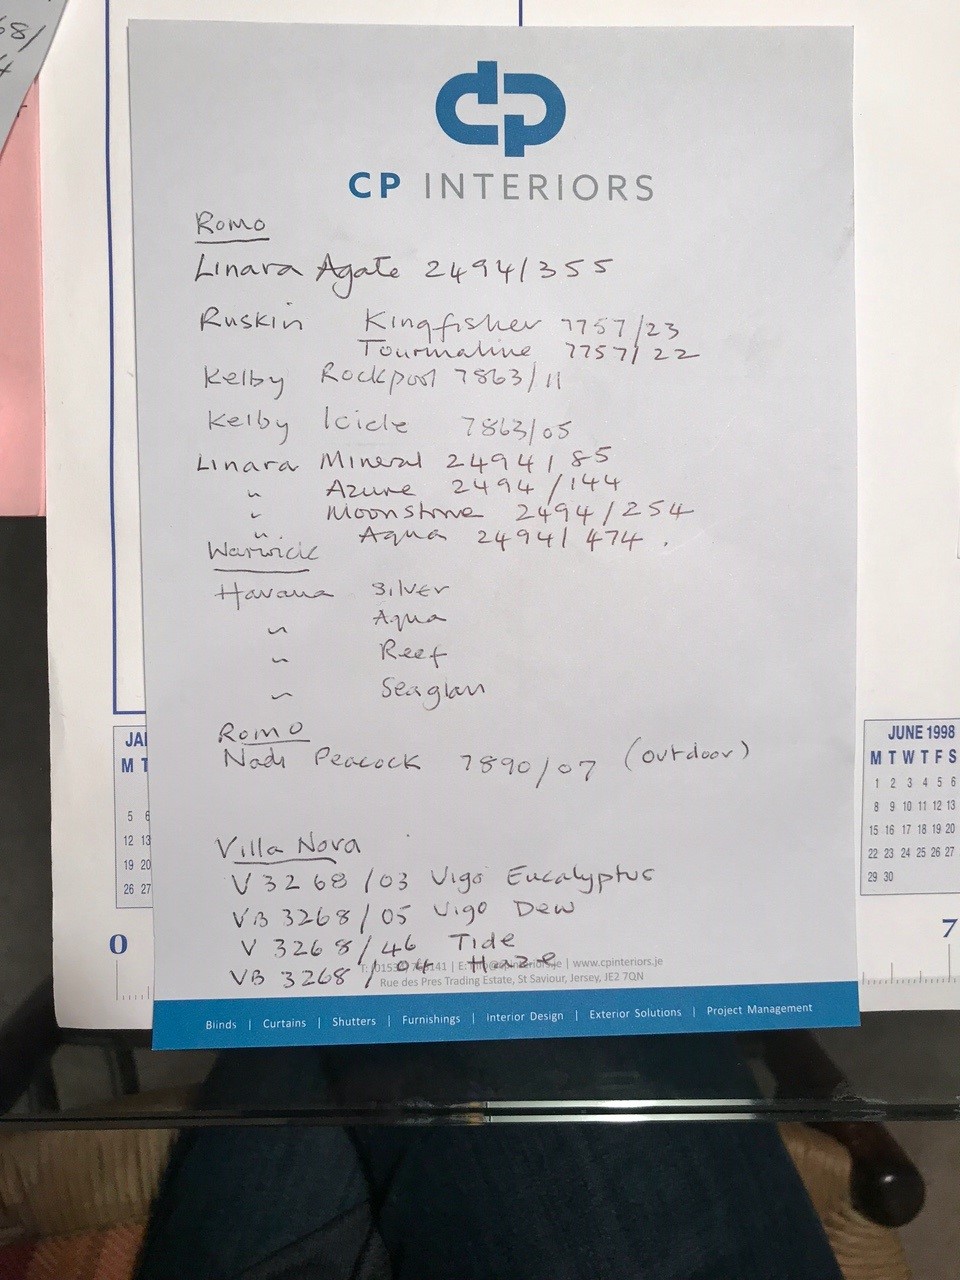 68/
CP INTERIORS
Romo
Linara Agate 2494/355
Ruskin Kingfisher 7757/23
Tourmaline 7757/22
Kelby Rockpool 7863/11
Kelby Icicle 7863/05
Linara Mineral 2494/85
" Azure 2494/144
" Moonstone 2494/254
" Aqua 2494/474.
Warwick
Havana Silver
" Aqua
" Reef
" Seaglass
Romo
Nadi Peacock 7890/07 (outdoor)
Villa Nova
V3268/03 Vigo Eucalyptus
VB3268/05 Vigo Dew
V3268/46 Tide
VB3268/04 Haze
| www.cpinteriors.je
Rue des Pres Trading Estate, St Saviour, Jersey, JE2 7QN
Blinds | Curtains | Shutters | Furnishings | Interior Design | Exterior Solutions | Project Management
JA
M T
5 6
12 13
19 20
26 27
0
JUNE 1998
M T W T F S
1 2 3 4 5 6
8 9 10 11 12 13
15 16 17 18 19 20
22 23 24 25 26 27
29 30
7